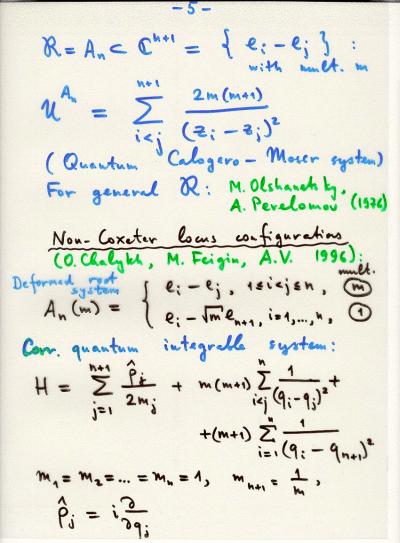 -5-
R = A_n ⊂ ℂ^{n+1} = { e_i - e_j } :
with mult. m
U^{A_n} = ∑_{i<j}^{n+1} 2m(m+1) / (z_i - z_j)^2
( Quantum Calogero - Moser system)
For general R : M. Olshanetsky,
A. Perelomov (1976)
Non-Coxeter locus configurations
(O. Chalykh, M. Feigin, A.V. 1996):
Deformed root system
mult.
A_n(m) = { e_i - e_j, 1≤i<j≤n, (m)
e_i - √m e_{n+1}, i=1,...,n, (1)
Corr. quantum integrable system:
H = ∑_{j=1}^{n+1} p̂_j / 2m_j + m(m+1) ∑_{i<j}^{n} 1 / (q_i - q_j)^2 +
+(m+1) ∑_{i=1}^{n} 1 / (q_i - q_{n+1})^2
m_1 = m_2 = ... = m_n = 1, m_{n+1} = 1/m,
p̂_j = i ∂/∂q_j